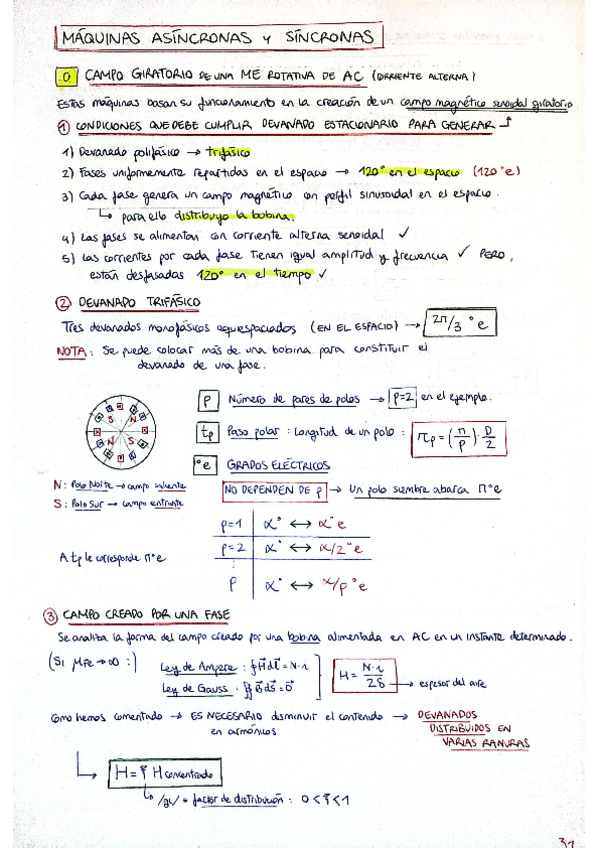 MÁQUINAS ASÍNCRONAS y SÍNCRONAS
0 CAMPO GIRATORIO DE UNA ME ROTATIVA DE AC (CORRIENTE ALTERNA)
Estas máquinas basan su funcionamiento en la creación de un campo magnético senoidal giratorio
① CONDICIONES QUE DEBE CUMPLIR DEVANADO ESTACIONARIO PARA GENERAR
1) Devanado polifásico → trifásico
2) Fases uniformemente repartidas en el espacio → 120° en el espacio (120°e)
3) Cada fase genera un campo magnético con perfil sinusoidal en el espacio.
↳ para ello distribuyo la bobina.
4) Las fases se alimentan con corriente alterna senoidal ✓
5) Las corrientes por cada fase tienen igual amplitud y frecuencia ✓ PERO,
están desfasadas 120° en el tiempo ✓
② DEVANADO TRIFÁSICO
Tres devanados monofásicos equiespaciados (EN EL ESPACIO) → 2π/3 °e
NOTA: Se puede colocar más de una bobina para constituir el
devanado de una fase.
p Número de pares de polos → p=2 en el ejemplo.
tp Paso polar : Longitud de un polo : τp = (π/p) · D/2
°e GRADOS ELÉCTRICOS
S N
N S
N: Polo Norte → campo saliente
S: Polo Sur → campo entrante
NO DEPENDEN DE p → Un polo siempre abarca π°e
p=1 α° ↔ α°e
p=2 α° ↔ α/2 °e
A tp le corresponde π°e
p α° ↔ α/p °e
③ CAMPO CREADO POR UNA FASE
Se analiza la forma del campo creado por una bobina alimentada en AC en un instante determinado.
(Si μFe→∞ :)
Ley de Ampere : ∮H⃗dl⃗ = N·i
Ley de Gauss : ∯B⃗dS⃗ = 0⃗
H = N·i/2δ → espesor del aire
Como hemos comentado → ES NECESARIO disminuir el contenido → DEVANADOS
en armónicos
DISTRIBUIDOS EN
VARIAS RANURAS
H = ξ H concentrado
= factor de distribución : 0 < ξ < 1
31